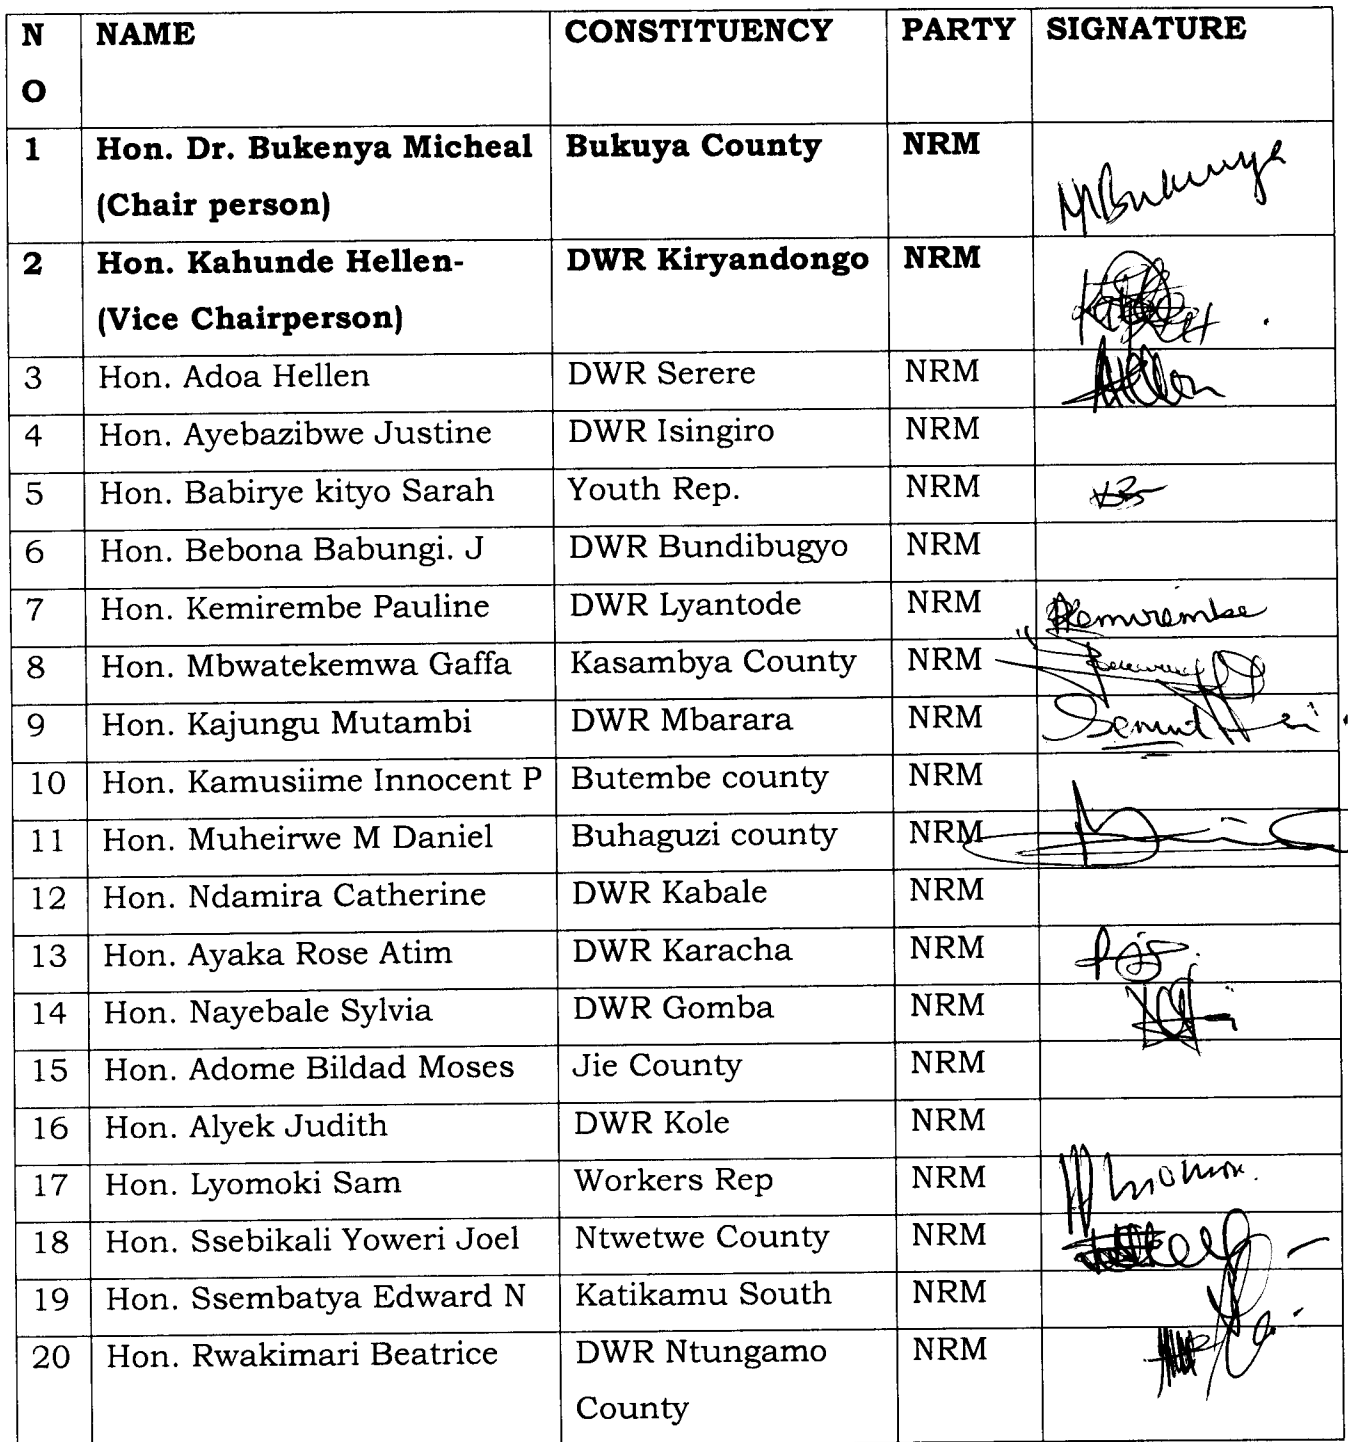 N NAME CONSTITUENCY PARTY SIGNATURE
O
1 Hon. Dr. Bukenya Micheal Bukuya County NRM MBukenya
(Chair person)
2 Hon. Kahunde Hellen- DWR Kiryandongo NRM
(Vice Chairperson)
3 Hon. Adoa Hellen DWR Serere NRM
4 Hon. Ayebazibwe Justine DWR Isingiro NRM
5 Hon. Babirye kityo Sarah Youth Rep. NRM
6 Hon. Bebona Babungi. J DWR Bundibugyo NRM
7 Hon. Kemirembe Pauline DWR Lyantode NRM Kemirembe
8 Hon. Mbwatekemwa Gaffa Kasambya County NRM
9 Hon. Kajungu Mutambi DWR Mbarara NRM
10 Hon. Kamusiime Innocent P Butembe county NRM
11 Hon. Muheirwe M Daniel Buhaguzi county NRM
12 Hon. Ndamira Catherine DWR Kabale NRM
13 Hon. Ayaka Rose Atim DWR Karacha NRM
14 Hon. Nayebale Sylvia DWR Gomba NRM
15 Hon. Adome Bildad Moses Jie County NRM
16 Hon. Alyek Judith DWR Kole NRM
17 Hon. Lyomoki Sam Workers Rep NRM
18 Hon. Ssebikali Yoweri Joel Ntwetwe County NRM
19 Hon. Ssembatya Edward N Katikamu South NRM
20 Hon. Rwakimari Beatrice DWR Ntungamo NRM
County